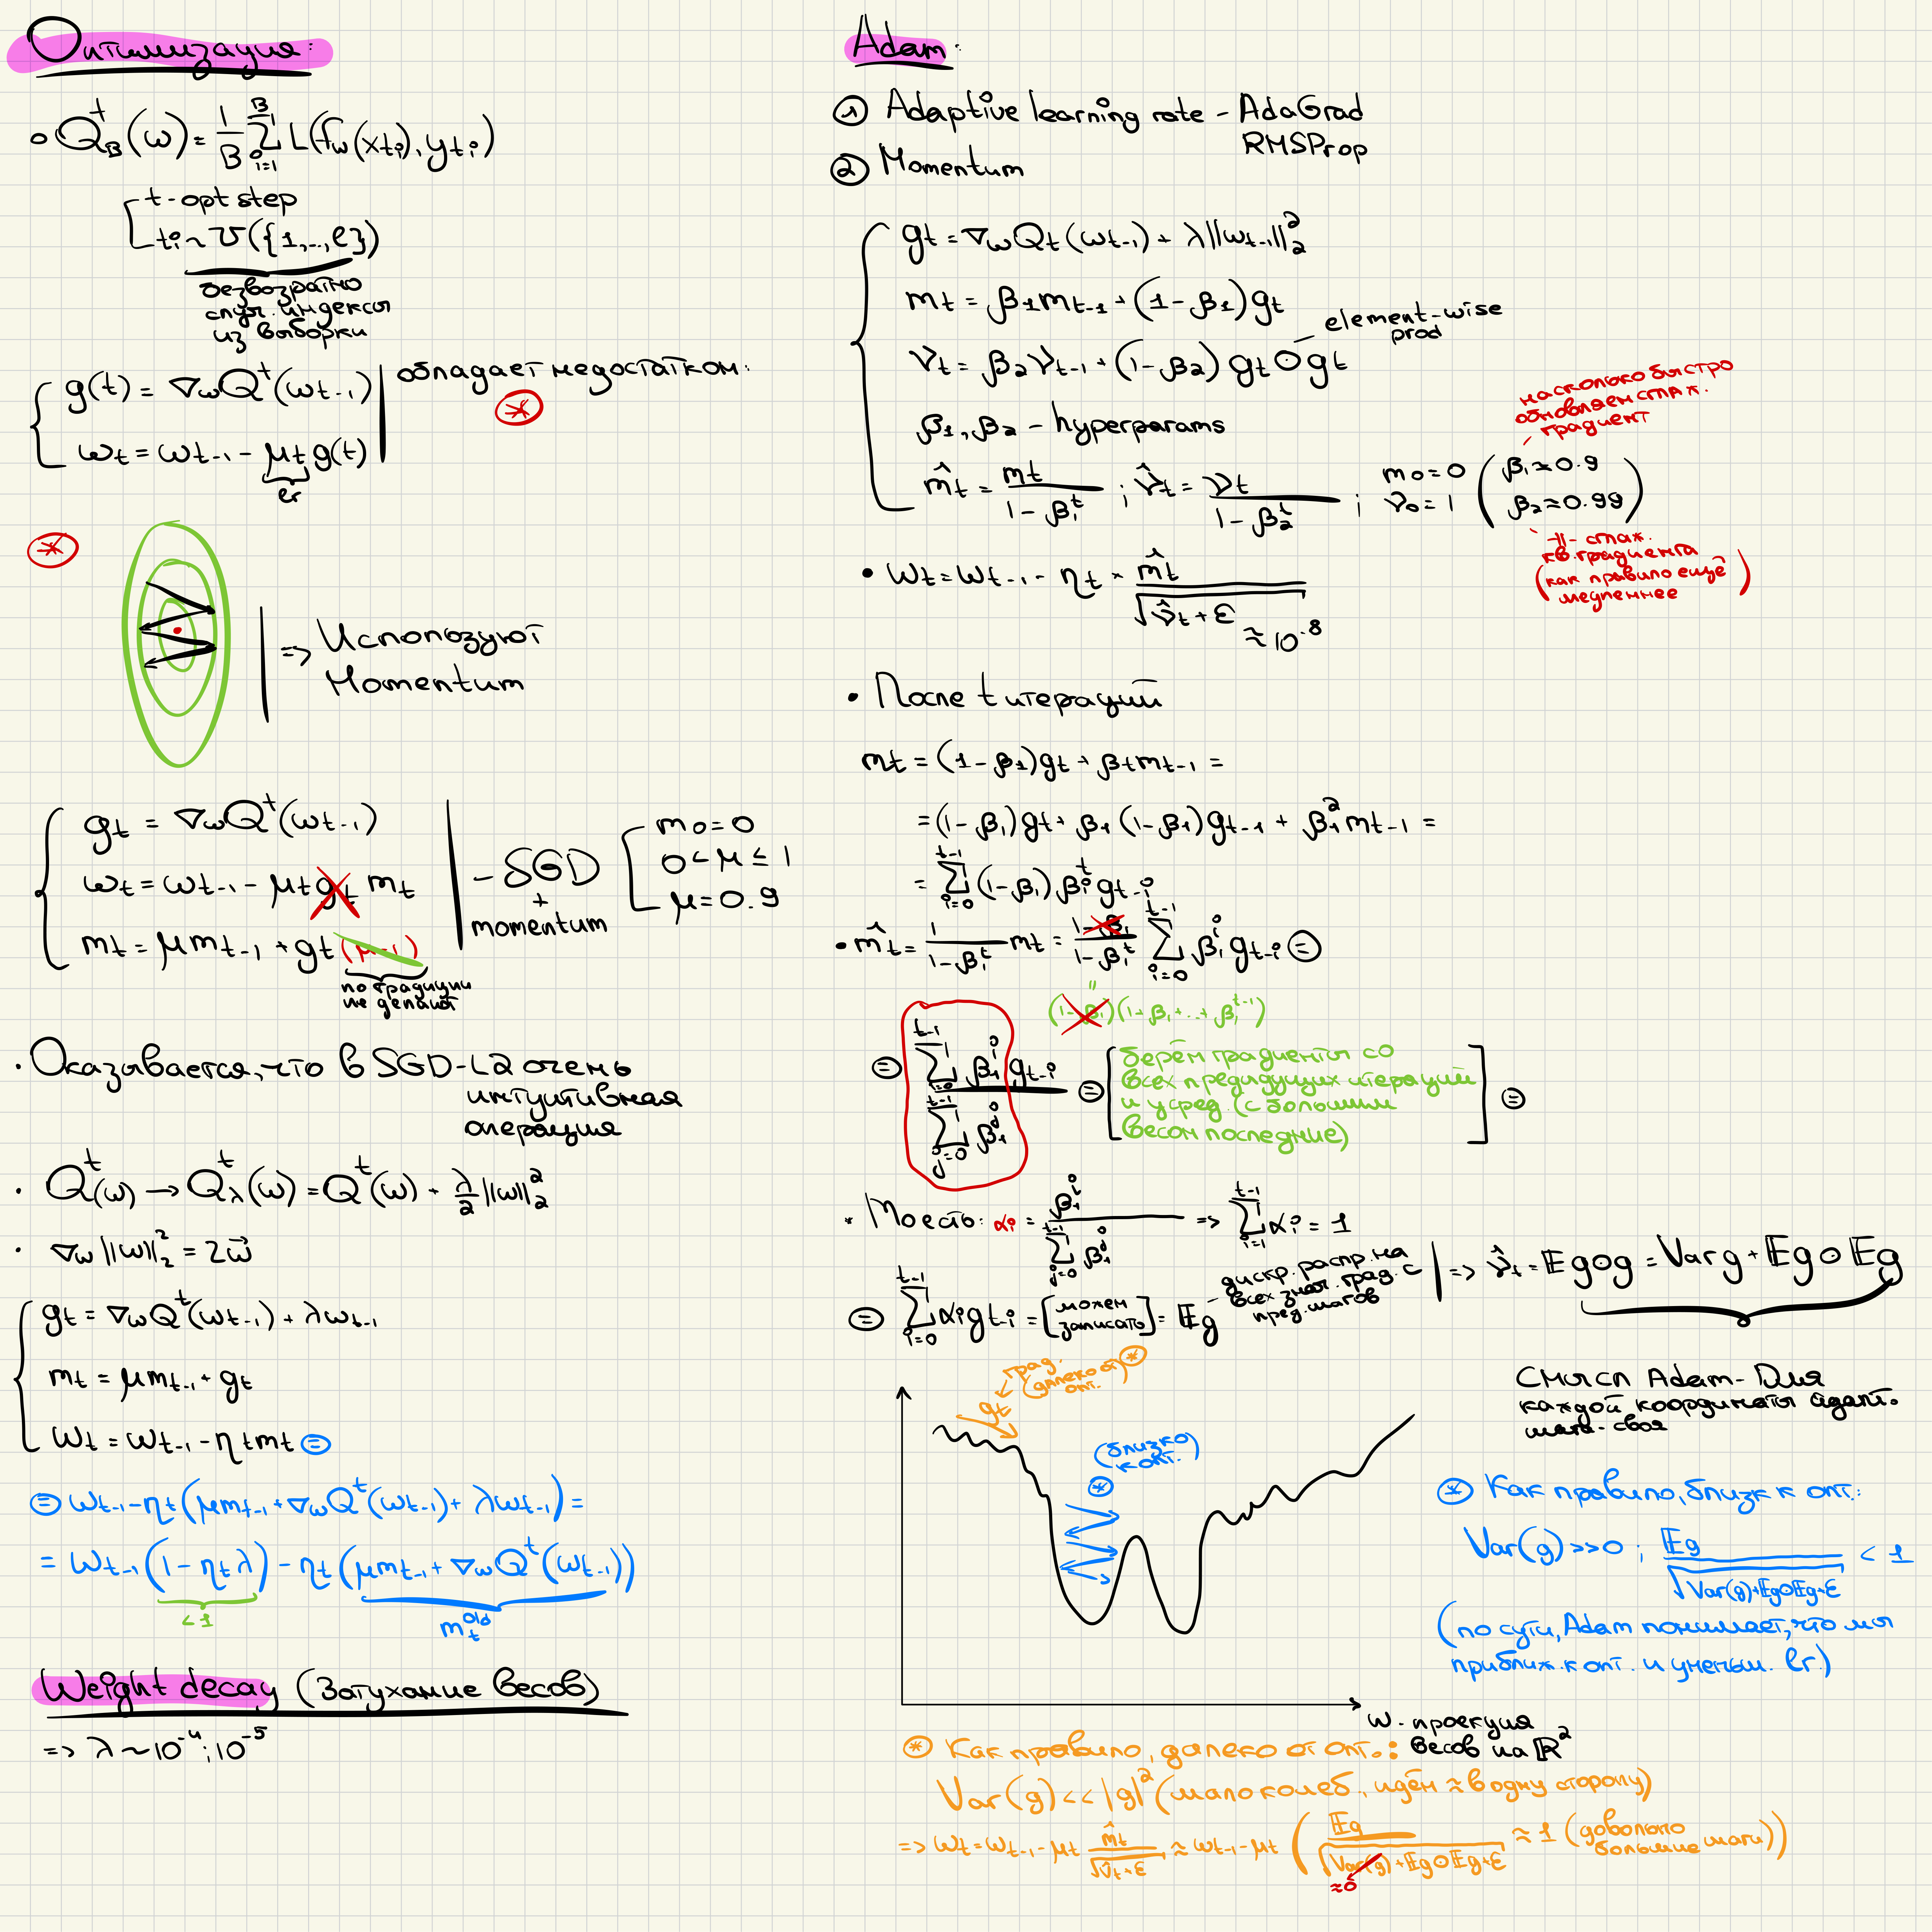 Оптимизация:
• Q_B^t(ω) = 1/B Σ_{i=1}^{B} L(f_ω(x_{ti}), y_{ti})
t - opt step
t_i ~ U({1,..,ℓ})
безвозратно
случ. индексы
из выборки
g(t) = ∇_ω Q^t(ω_{t-1})
ω_t = ω_{t-1} - μ_t g(t)
lr
обладает недостатком:
(*)
(*)
=> Используют
Momentum
g_t = ∇_ω Q^t(ω_{t-1})
ω_t = ω_{t-1} - μ_t g_t m_t
m_t = μ m_{t-1} + g_t (μ-1)
по традиции
не делают
- SGD
+
momentum
m_0 = 0
0 < μ ≤ 1
μ = 0.9
• Оказывается, что в SGD-L2 очень
интуитивная
операция
• Q^t(ω) → Q_λ^t(ω) = Q^t(ω) + λ/2 ||ω||_2^2
• ∇_ω ||ω||_2^2 = 2ω⃗
g_t = ∇_ω Q^t(ω_{t-1}) + λω_{t-1}
m_t = μ m_{t-1} + g_t
ω_t = ω_{t-1} - η_t m_t (=)
(=) ω_{t-1} - η_t (μ m_{t-1} + ∇_ω Q^t(ω_{t-1}) + λω_{t-1}) =
= ω_{t-1} (1 - η_t λ) - η_t (μ m_{t-1} + ∇_ω Q^t(ω_{t-1}))
< 1
m_t^{old}
Weight decay (Затухание весов)
=> λ ~ 10^{-4}; 10^{-5}
Adam:
① Adaptive learning rate - AdaGrad
RMSProp
② Momentum
g_t = ∇_ω Q_t(ω_{t-1}) + λ||ω_{t-1}||_2^2
m_t = β_1 m_{t-1} + (1-β_1) g_t
ν_t = β_2 ν_{t-1} + (1-β_2) g_t ⊙ g_t
- element-wise
prod
β_1, β_2 - hyperparams
m̂_t = m_t / (1 - β_1^t) ; ν̂_t = ν_t / (1 - β_2^t) ; m_0 = 0 ν_0 = 1 (β_1 ≈ 0.9 β_2 ≈ 0.99)
насколько быстро
обновляем сглаж.
- градиент
-||- сглаж.
кв. градиента
(как правило ещё
медленнее)
• ω_t = ω_{t-1} - η_t * m̂_t / √(ν̂_t + ε)
≈ 10^{-8}
• После t итераций
m_t = (1-β_1) g_t + β_t m_{t-1} =
= (1-β_1) g_t + β_1 (1-β_1) g_{t-1} + β_1^2 m_{t-1} =
= Σ_{i=0}^{t-1} (1-β_1) β_i^t g_{t-i}
• m̂_t = 1/(1-β_1^t) m_t = (1-β_1)/(1-β_1^t) Σ_{i=0}^{t-1} β_1^i g_{t-i} (=)
"
(1-β_1)(1+β_1+..+β_1^{t-1})
(=) Σ_{i=0}^{t-1} β_1^i g_{t-i} / Σ_{j=0}^{t-1} β_1^j (=)
[берём градиенты со
всех предидущих итераций
и усред. (с большим
весом последние)] (=)
• То есть: α_i = β_1^i / Σ_{j=0}^{t-1} β_1^j => Σ_{i=1}^{t-1} α_i = 1
(=) Σ_{i=0}^{t-1} α_i g_{t-i} = [можем записать] = 𝔼g
- дискр. распр. на
всех знач. град. с
пред. шагов
=> ν̂_t = 𝔼g⊙g = Var g + 𝔼g ⊙ 𝔼g
Смысл Adam - Для
каждой координаты адапт.
шага - своя
град.
(далеко от
опт.) (*)
g_t
(близко
к опт.)
(*)
ω - проекция
весов на ℝ^2
(*) Как правило, близк к опт.:
Var(g) >> 0 ; 𝔼g / √(Var(g)+𝔼g⊙𝔼g+ε) < 1
(по сути, Adam понимает, что мы
приближ. к опт. и уменьш. lr.)
(*) Как правило, далеко от опт.:
Var(g) << |g|^2 (мало колеб., идём ≈ в одну сторону)
=> ω_t = ω_{t-1} - μ_t m̂_t / √(ν̂_t + ε) ≈ ω_{t-1} - μ_t (𝔼g / √(Var(g)+𝔼g⊙𝔼g+ε) ≈ 1 (довольно большие шаги))
≈0